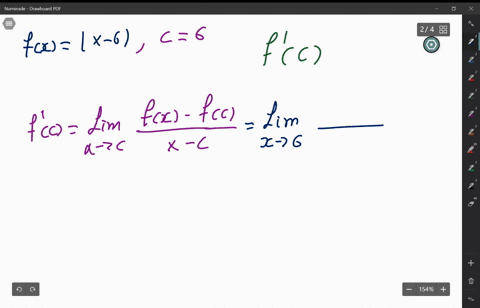 Numerade - Drawboard PDF
f(x) = |x-6), c = 6
f'(c)
2/4
f'(c) = Lim x→c f(x) - f(c) / x - c = Lim x→6
154%